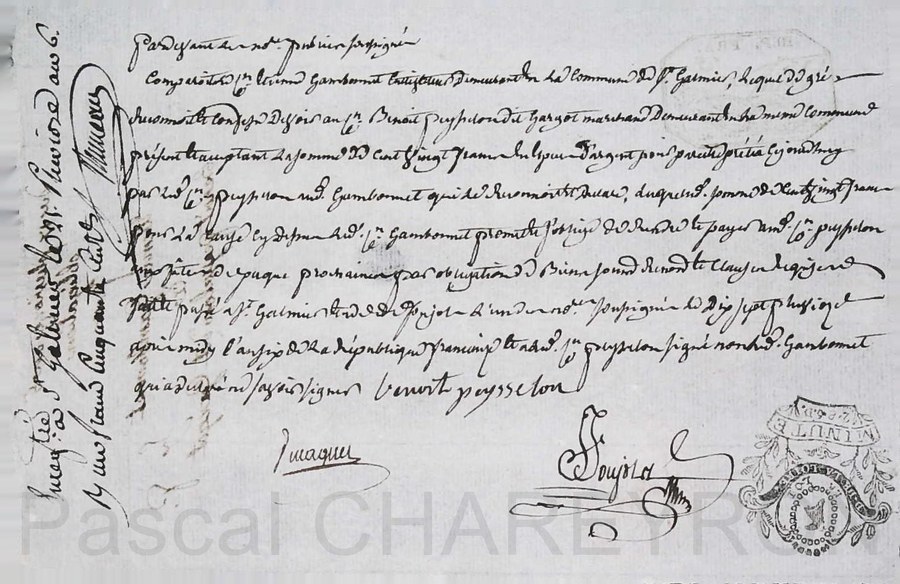 Pardevant le no.re public soussigné
Comparoit le c.en Gambonnet demeurant en la commune de s.t Galmier, lequel de gré
reconnoit devoir au c.en Benoit peysselon dit hargot marchand demeurant en la meme commune
présent et acceptant la somme de cent vingt francs en espece d'argent pour pareille prettée cejourdhuy
par led. c.en peysselon aud. Gambonnet qui le reconnoit et declare, laquelle d. somme de cent vingt francs
pour la cause cy dessus led. c.en Gambonnet promet et s'oblige de rendre et payer aud. c.en peysselon
aux fetes de paque prochaines par obligation de Biens soumis renon et clauses requises
fait et passé a s.t Galmier etude de Ponjol l'un des no.res soussigné le dix sept pluviose
apres midy l'an six de la république francaise et a led. c.en peysselon signé non led. Gambonnet
qui a declaré ne savoir signer benoit peysselon
Ponjol
Enregistré à s.t Galmier le 21 Pluviose an 6.
Reçu un franc cinquante cent.
MINUTE
Pascal CHAREYRON